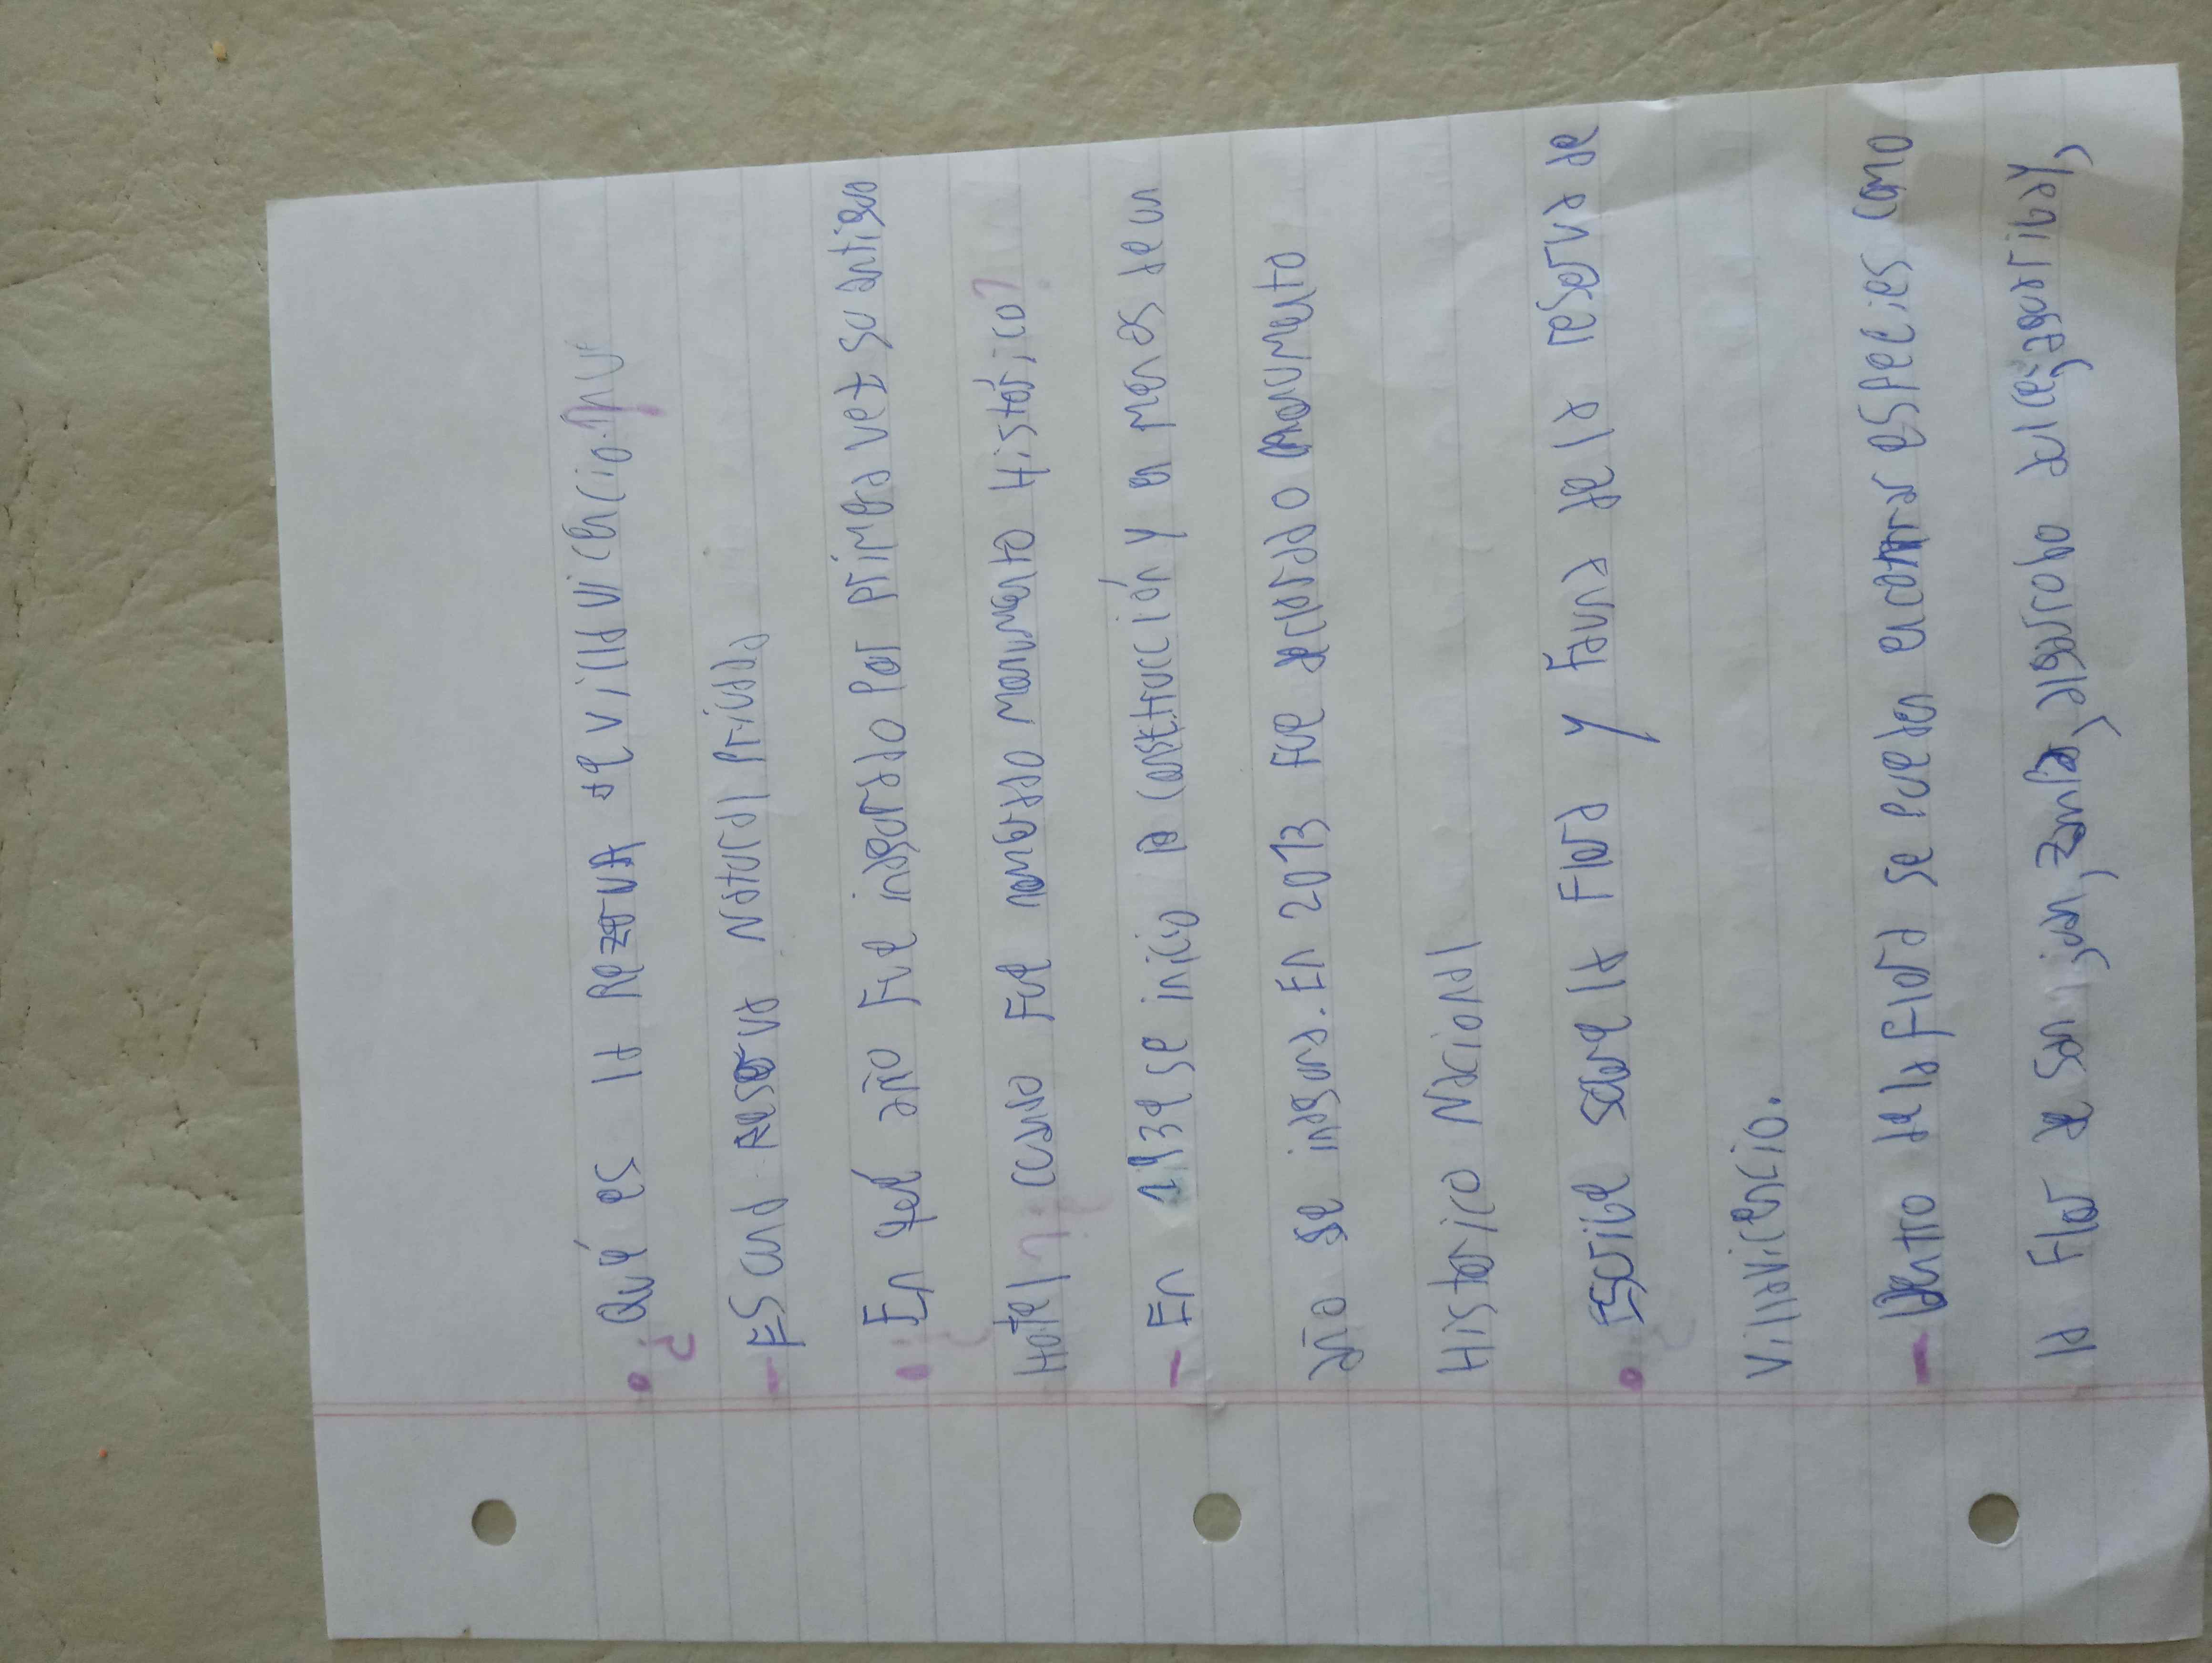 • ¿Qué es la Rezerva de villa vicencio?
- ES una reserva Natural Privada
• ¿En qué año Fue inagurado Por primera vez su antiguo
Hotel ¿cuando Fue nomerado monumento Histórico?
- En 1939 se inicio la construcción y en menos de un
año se inagura. En 2013 Fue declarado monumento
Historico Nacional
• Escribe sobre la Flora y Fauna de la reserva de
Villavicencio.
- Dentro de la Flora se pueden encontrar especies como
la Flor de San juan, zampa, algarrobo